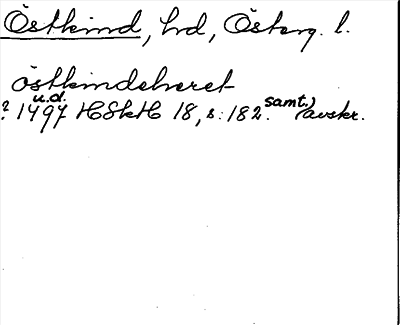 Östkind, hd, Österg. l.
östkindehæret
u.d. samt.)
? 1497 HSkH 18, s. 182. (avskr.